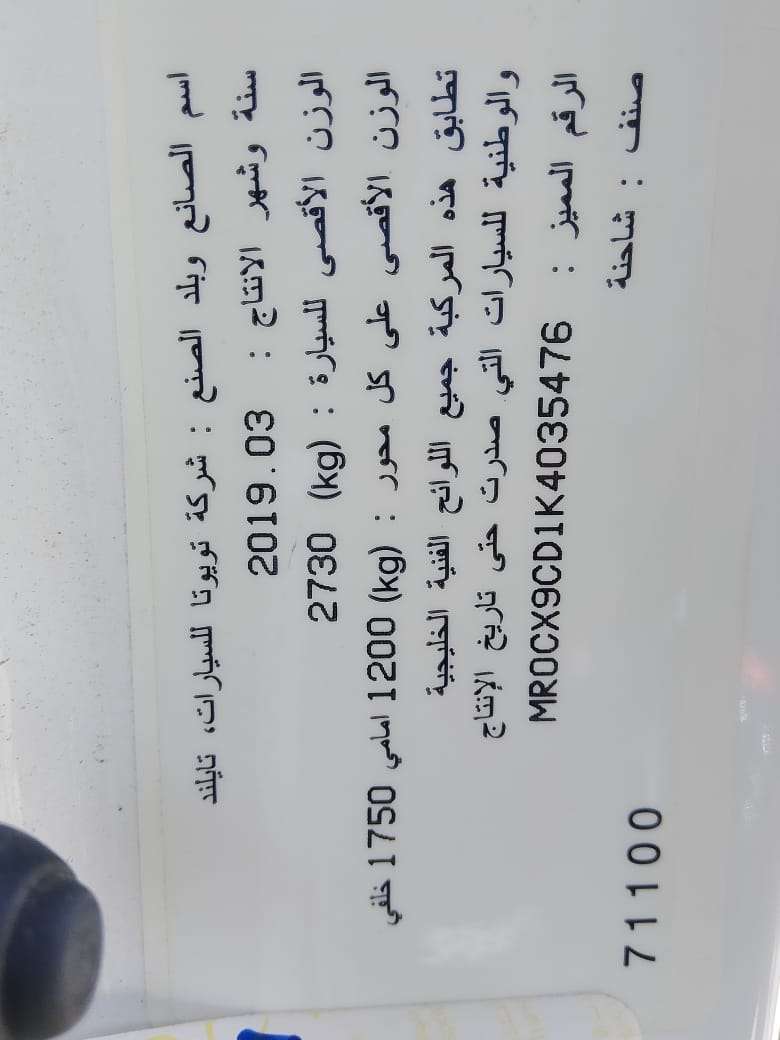 اسم الصانع وبلد الصنع : شركة تويوتا للسيارات، تايلند
سنة وشهر الانتاج : 2019.03
الوزن الأقصى للسيارة : 2730 (kg)
الوزن الأقصى على كل محور : (kg) 1200 امامي 1750 خلفي
تطابق هذه المركبة جميع اللوائح الفنية الخليجية
والوطنية للسيارات التي صدرت حتى تاريخ الإنتاج
الرقم المميز : MR0CX9CD1K4035476
صنف : شاحنة
71100